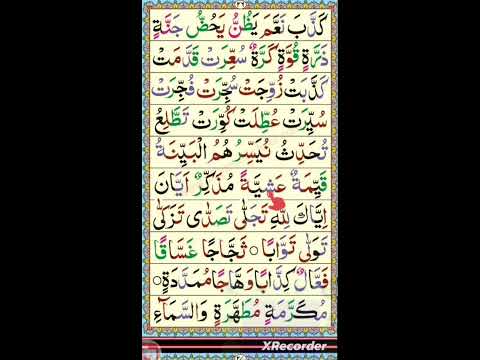 كَذَّبَ نَعَّمَ يَظُنُّ يَحُضُّ جَنَّةٍ
ذَرَّةٍ قُوَّةٍ كَرَّةٌ سُعِّرَتْ قَدَّمَتْ
كَذَّبَتْ زُوِّجَتْ سُجِّرَتْ فُجِّرَتْ
سُيِّرَتْ عُطِّلَتْ كُوِّرَتْ تَطَّلِعُ
تُحَدِّثُ نُيَسِّرُ هُمُ الْبَيِّنَةُ
قَيِّمَةٌ عَشِيَّةً مُذَكِّرٌ اَيَّانَ
اِيَّاكَ لِلّٰهِ تَجَلّٰى تَصَدّٰى تَزَكّٰى
تَوَلّٰى تَوَّابًا ○ ثَجَّاجًا غَسَّاقًا
فَعَّالٌ كِذَّابًا وَّهَّاجًا مُمَدَّدَةٍ ○
مُكَرَّمَةٍ مُطَهَّرَةٍ وَالسَّمَآءِ
XRecorder